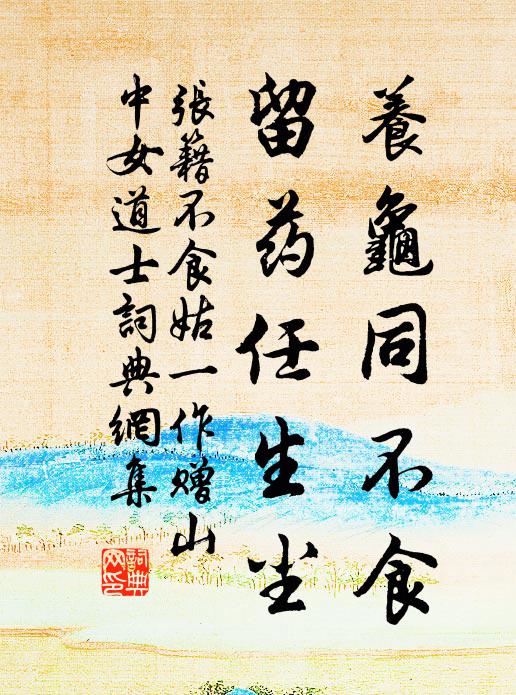 養龜同不食
留药任生尘
張籍不食姑一作贈山
中女道士詞典網集
詞典
网印